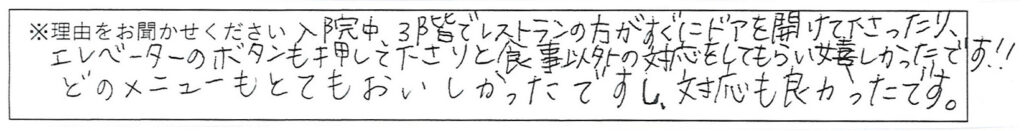 ※理由をお聞かせください 入院中、3階でレストランの方がすぐにドアを開けて下さったり、
エレベーターのボタンも押して下さりと食事以外の対応をしてもらい嬉しかったです!!
どのメニューもとてもおいしかったですし、対応も良かったです。